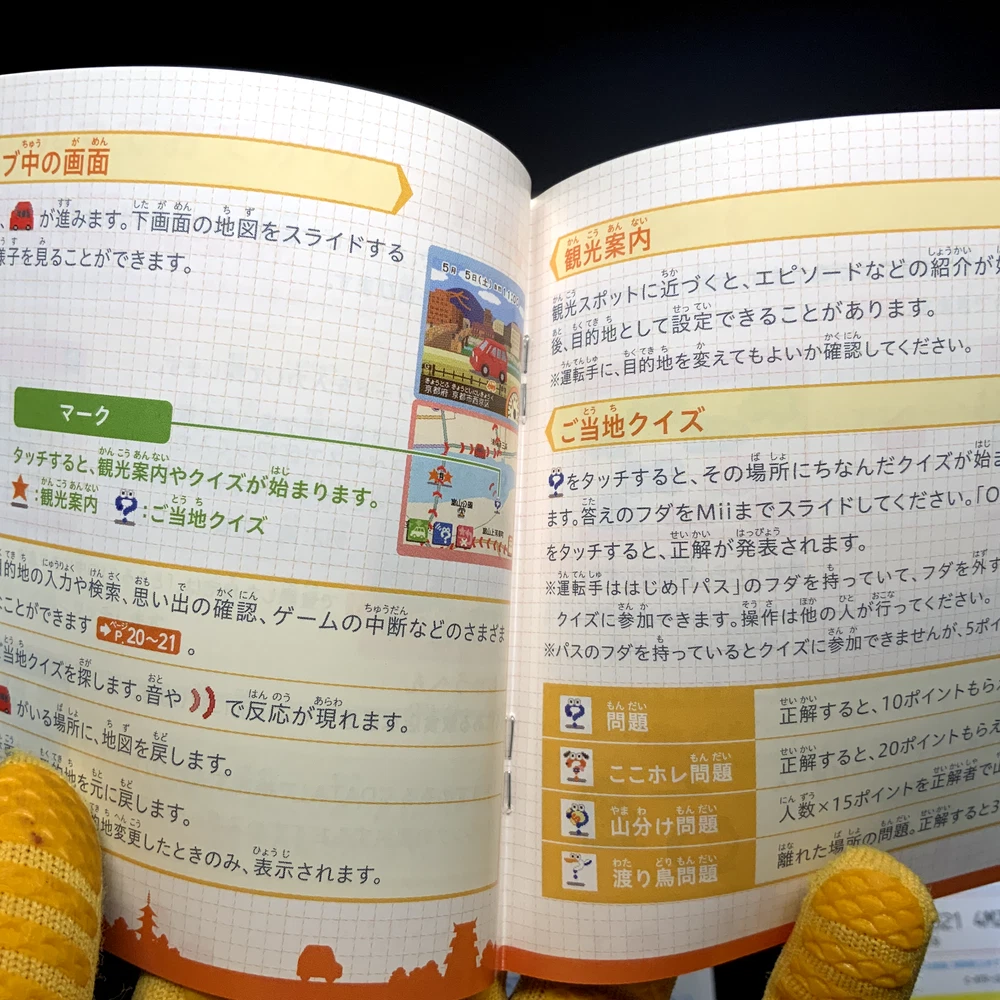 ブ中の画面
、が進みます。下画面の地図をスライドする
様子を見ることができます。
5月 5日(土)
きょうとふ きょうとしにしきょうく
京都府 京都市西京区
マーク
タッチすると、観光案内やクイズが始まります。
:観光案内 :ご当地クイズ
嵐山公園
目的地の入力や検索、思い出の確認、ゲームの中断などのさまざま
なことができます P.20~21 。
ご当地クイズを探します。音や で反応が現れます。
がいる場所に、地図を戻します。
地を元に戻します。
的地変更したときのみ、表示されます。
観光案内
観光スポットに近づくと、エピソードなどの紹介が始
後、目的地として設定できることがあります。
※運転手に、目的地を変えてもよいか確認してください。
ご当地クイズ
をタッチすると、その場所にちなんだクイズが始ま
ます。答えのフダをMiiまでスライドしてください。「O
をタッチすると、正解が発表されます。
※運転手ははじめ「パス」のフダを持っていて、フダを外す
クイズに参加できます。操作は他の人が行ってください。
※パスのフダを持っているとクイズに参加できませんが、5ポイ
問題 正解すると、10ポイントもらえ
ここホレ問題 正解すると、20ポイントもらえ
山分け問題 人数×15ポイントを正解者で山
渡り鳥問題 離れた場所の問題。正解すると3